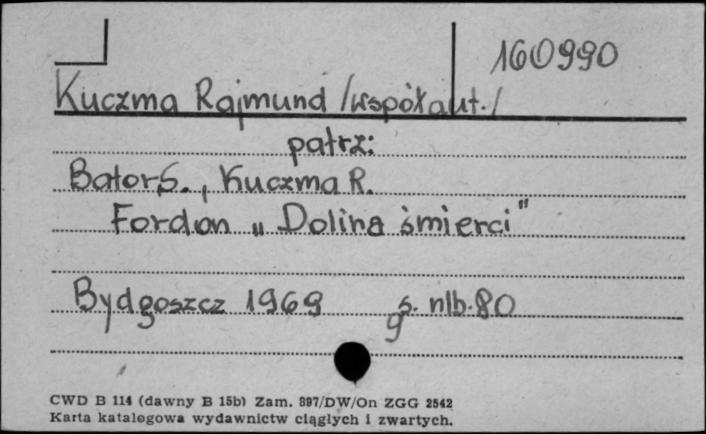 160990
Kuczma Rajmund /współaut./
patrz:
Bator S., Kuczma R.
Fordon „Dolina śmierci"
Bydgoszcz 1969 s. nlb. 80
CWD B 114 (dawny B 15b) Zam. 897/DW/On ZGG 2542
Karta katalogowa wydawnictw ciągłych i zwartych.